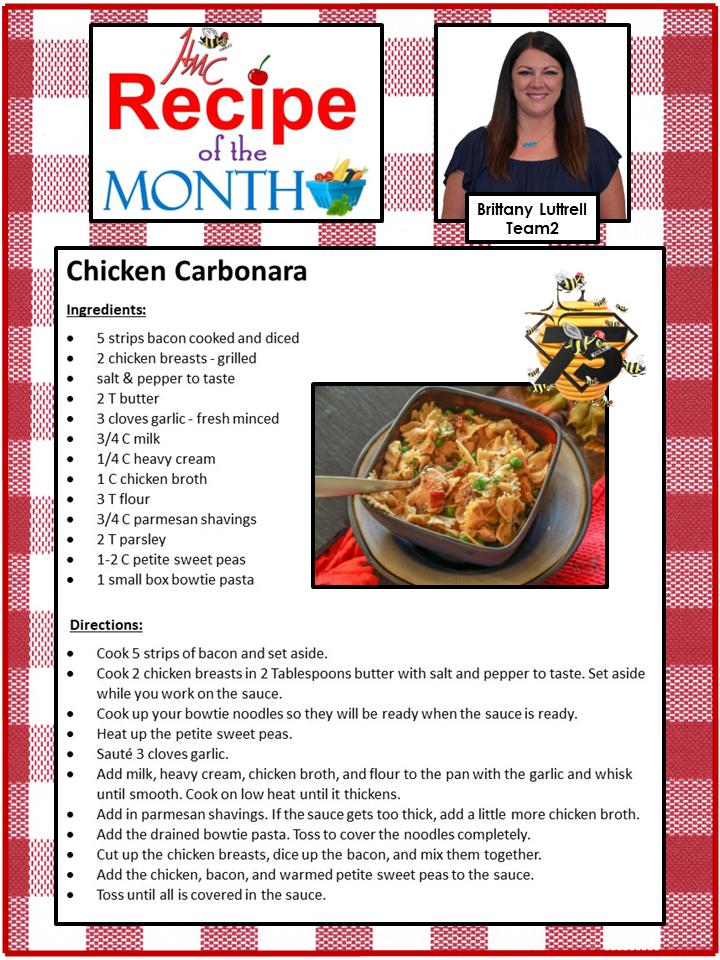 HMC
Recipe
of the
MONTH
Brittany Luttrell
Team2
Chicken Carbonara
Ingredients:
• 5 strips bacon cooked and diced
• 2 chicken breasts - grilled
• salt & pepper to taste
• 2 T butter
• 3 cloves garlic - fresh minced
• 3/4 C milk
• 1/4 C heavy cream
• 1 C chicken broth
• 3 T flour
• 3/4 C parmesan shavings
• 2 T parsley
• 1-2 C petite sweet peas
• 1 small box bowtie pasta
Directions:
• Cook 5 strips of bacon and set aside.
• Cook 2 chicken breasts in 2 Tablespoons butter with salt and pepper to taste. Set aside
while you work on the sauce.
• Cook up your bowtie noodles so they will be ready when the sauce is ready.
• Heat up the petite sweet peas.
• Sauté 3 cloves garlic.
• Add milk, heavy cream, chicken broth, and flour to the pan with the garlic and whisk
until smooth. Cook on low heat until it thickens.
• Add in parmesan shavings. If the sauce gets too thick, add a little more chicken broth.
• Add the drained bowtie pasta. Toss to cover the noodles completely.
• Cut up the chicken breasts, dice up the bacon, and mix them together.
• Add the chicken, bacon, and warmed petite sweet peas to the sauce.
• Toss until all is covered in the sauce.